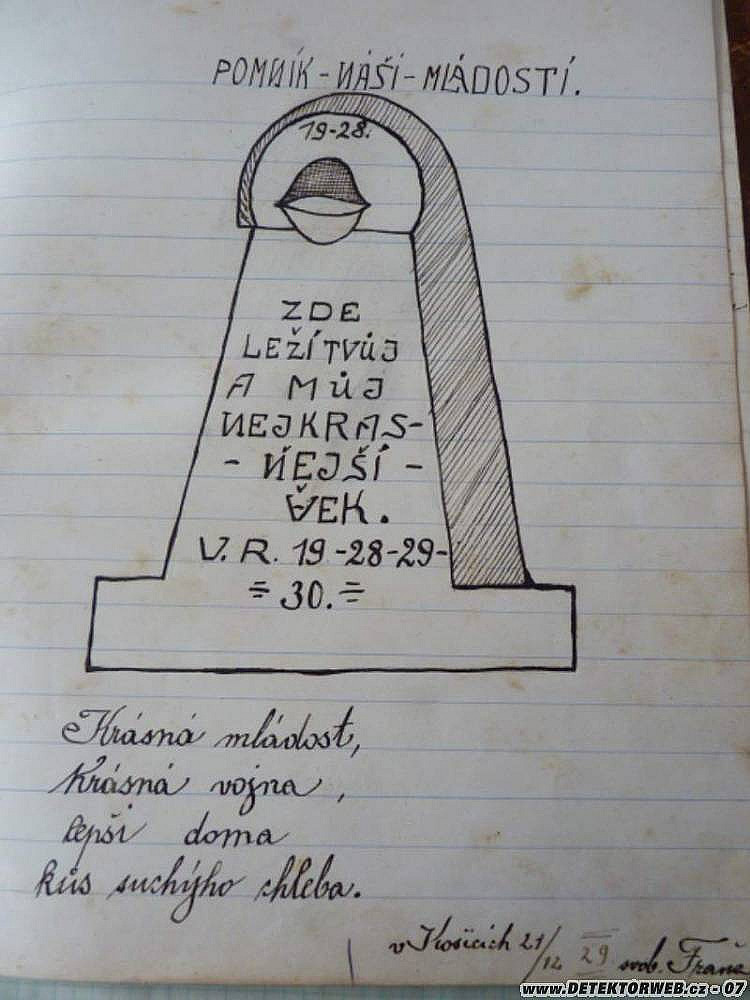 POMNÍK - NÁŠÍ - MLÁDOSTÍ.
19-28.
ZDE
LEŽÍ TVŮJ
A MŮJ
NEJKRAS-
- ŇEJŠÍ -
VĚK.
V. R. 19-28-29-
= 30. =
Krásná mládost,
Krásná vojna,
lepší doma
kůs suchýho chleba.
v Košicích 21/12 29 svob. Fraňa
www.DETEKTORWEB.cz - 07